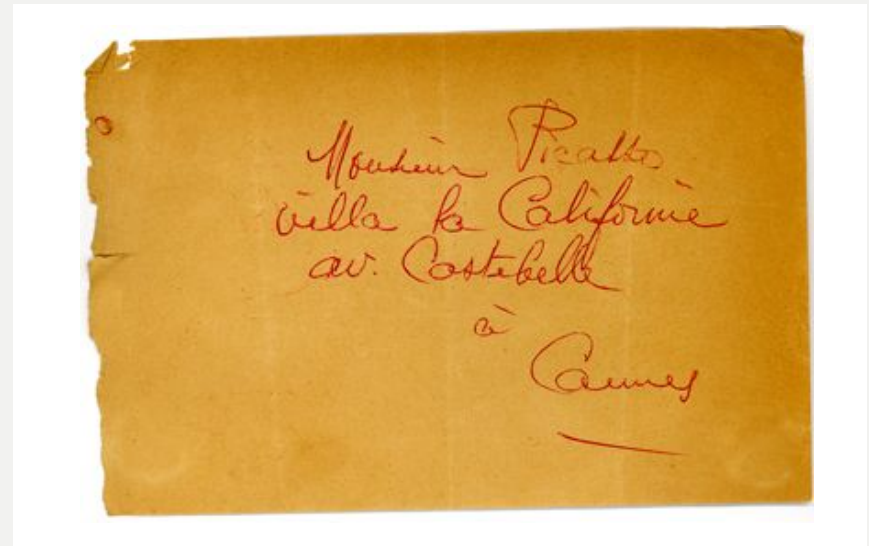 Monsieur Picasso
villa la Californie
av. Costebelle
à
Cannes